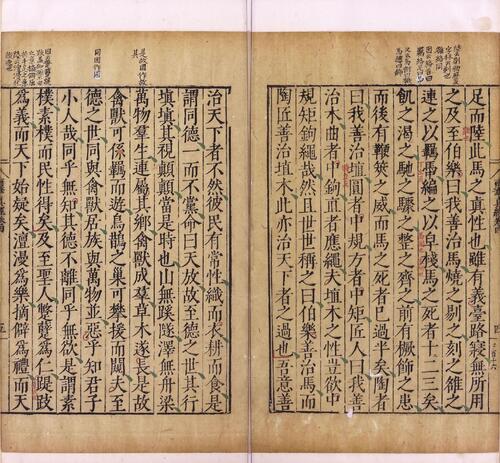 足而陸此馬之真性也雖有義臺路寢無所用
之及至伯樂曰我善治馬燒之剔之刻之雒之
連之以羈馽編之以皁棧馬之死者十二三矣
飢之渴之馳之驟之整之齊之前有橛飾之患
而後有鞭筴之威而馬之死者已過半矣陶者
曰我善治埴圓者中規方者中矩匠人曰我善
治木曲者中鉤直者應繩夫埴木之性豈欲中
規矩鉤繩哉然且世世稱之曰伯樂善治馬而
陶匠善治埴木此亦治天下者之過也吾意善
治天下者不然彼民有常性織而衣耕而食是
謂同德一而不黨命曰天放故至德之世其行
填填其視顛顛當是時也山無蹊隧澤無舟梁
萬物羣生連屬其鄉禽獸成羣草木遂長是故
禽獸可係羈而遊鳥鵲之巢可攀援而闚夫至
德之世同與禽獸居族與萬物並惡乎知君子
小人哉同乎無知其德不離同乎無欲是謂素
樸素樸而民性得矣及至聖人蹩躠為仁踶跂
為義而天下始疑矣澶漫為樂摘僻為禮而天